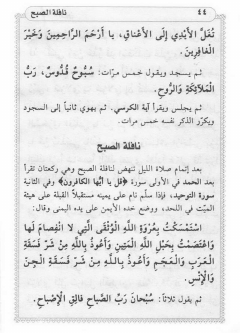 ٤٤
نافلة الصبح
تُغَلُّ الأَيْدِي إِلَى الأَعْنَاقِ، يا أَرْحَمَ الرَّاحِمِينَ وَخَيْرَ
الغافِرِينَ.
ثم يسجد ويقول خمس مرّات: سُبُّوحٌ قُدُّوسٌ، رَبُّ
المَلَائِكَةِ وَالرُّوحِ.
ثم يجلس ويقرأ آية الكرسي. ثم يهوي ثانياً إلى السجود
ويكرّر الذكر نفسه خمس مرات.
نافلة الصبح
بعد إتمام صلاة الليل تنهض لنافلة الصبح وهي ركعتان تقرأ
بعد الحمد في الأولى سورة ﴿قل يا أيُّها الكافرون﴾ وفي الثانية
سورة التوحيد، فإذا سلّم نام على يمينه مستقبلاً القبلة على هيئة
الميّت في اللحد، ووضع خده الأيمن على يده اليمنى وقال:
اسْتَمْسَكْتُ بِعُرْوَةِ اللَّهِ الْوُثْقَى الَّتِي لا انْفِصامَ لَها
وَاعْتَصَمْتُ بِحَبْلِ اللَّهِ الْمَتِينِ وَأَعُوذُ بِاللَّهِ مِنْ شَرِّ فَسَقَةِ
الْعَرَبِ وَالْعَجَمِ وَأَعُوذُ بِاللَّهِ مِنْ شَرِّ فَسَقَةِ الْجِنِّ
وَالْإِنْسِ.
ثم يقول ثلاثاً: سُبْحانَ رَبِّ الصَّباحِ فالِقِ الْإِصْباحِ.